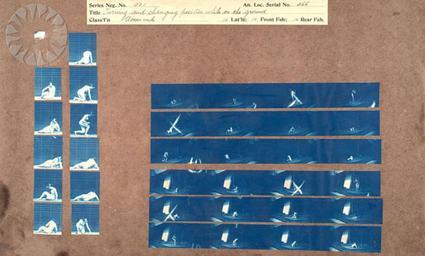 Series Neg. No. 221 An. Loc. Serial No.
Title Turning and changing position while on the ground
Class'f'n 12 Lat'ls; 12 Front Fsh. 12 Rear Fsh.